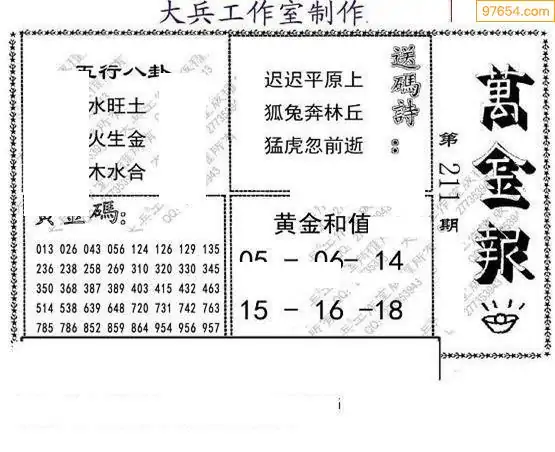 97654.com
大兵工作室制作
五行八卦
水旺土
火生金
木水合
送碼詩：
迟迟平原上
狐兔奔林丘
猛虎忽前逝
萬金報
第211期
黄金碼：
013 026 043 056 124 126 129 135
236 238 258 269 310 320 330 345
350 368 387 389 403 415 432 463
514 538 639 648 720 731 742 763
785 786 852 859 864 954 956 957
黄金和值
05 - 06- 14
15 - 16 -18